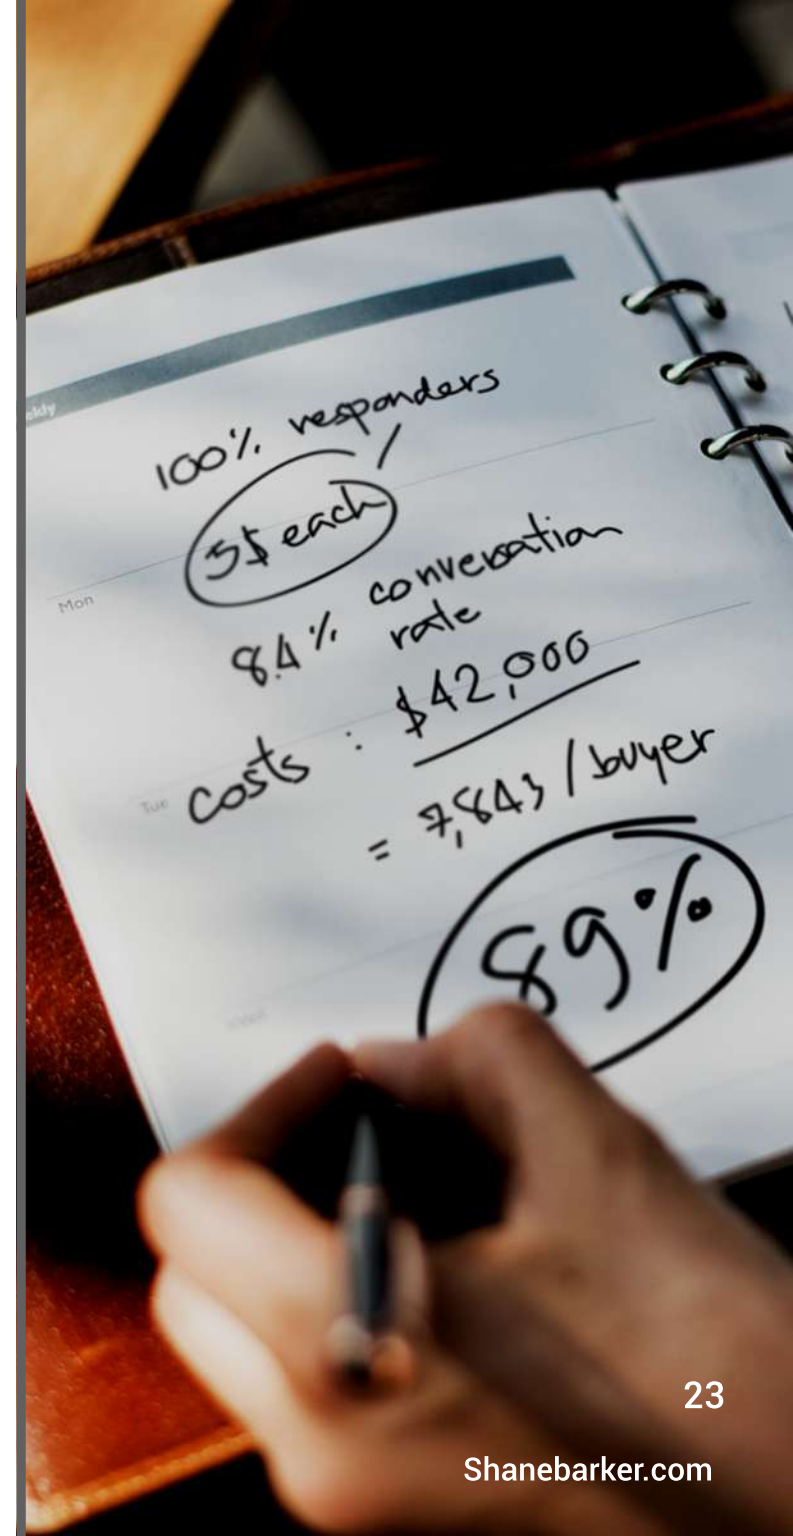 100% responders
5$ each
8.4% conversation
rate
costs : $42,000
= 7,843 / buyer
89%
Mon
Tue
23
Shanebarker.com